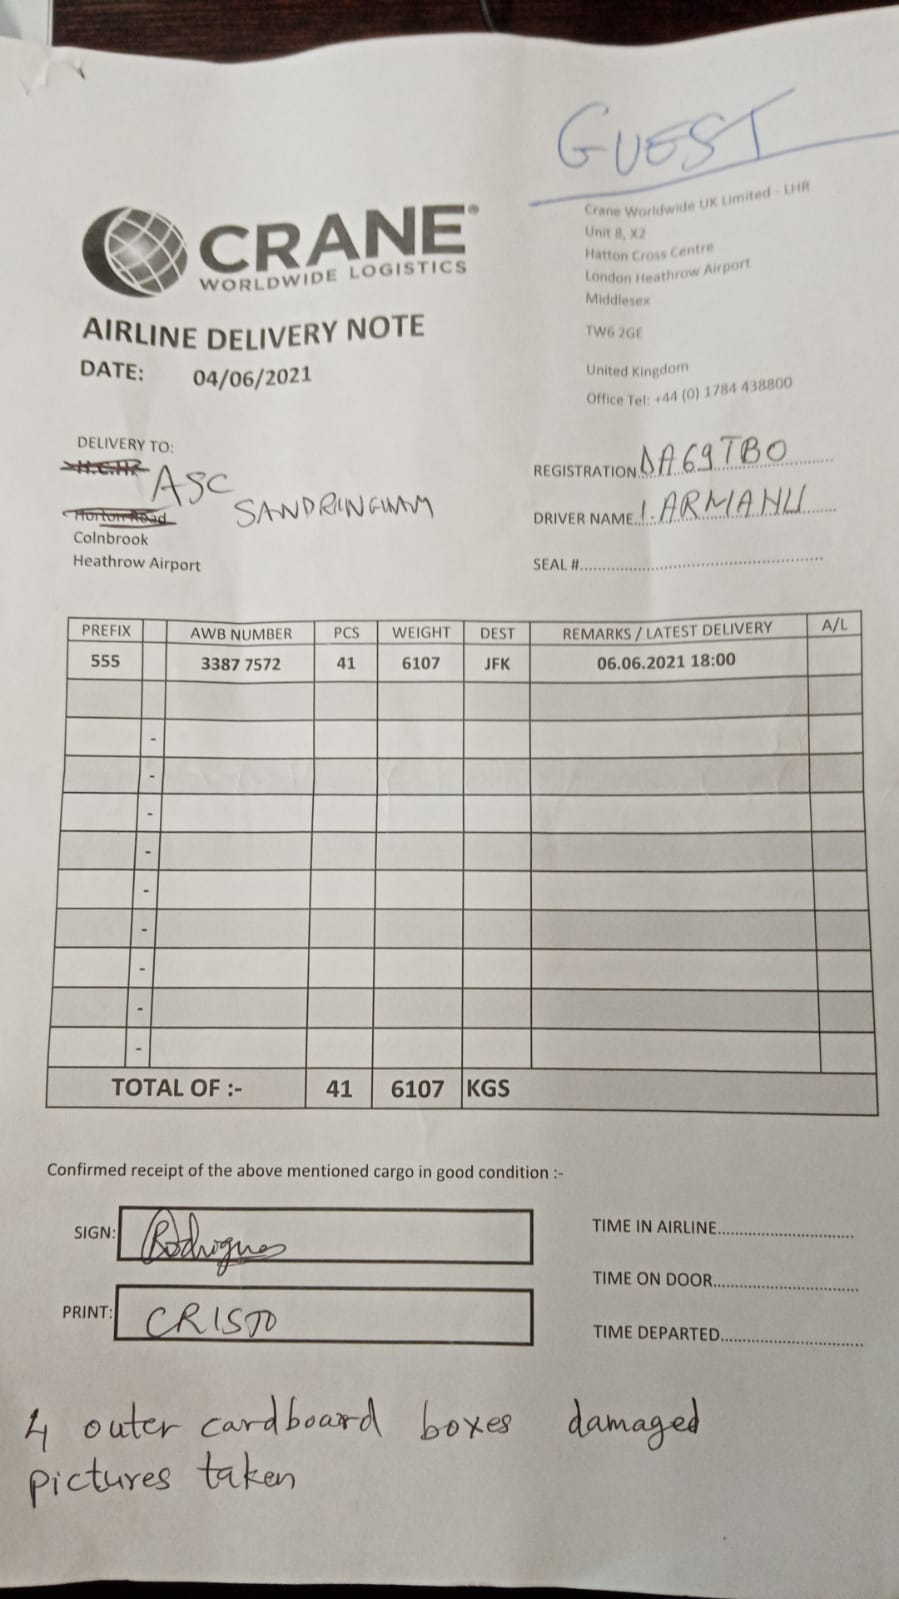 GUEST
CRANE®
WORLDWIDE LOGISTICS
AIRLINE DELIVERY NOTE
DATE: 04/06/2021
Crane Worldwide UK Limited - LHR
Unit 8, X2
Hatton Cross Centre
London Heathrow Airport
Middlesex
TW6 2GE
United Kingdom
Office Tel: +44 (0) 1784 438800
DELIVERY TO:
ASC
SANDRINGHAM
Horton Road
Colnbrook
Heathrow Airport
REGISTRATION DA69TBO
DRIVER NAME I. ARMANU
SEAL #
PREFIX AWB NUMBER PCS WEIGHT DEST REMARKS / LATEST DELIVERY A/L
555 3387 7572 41 6107 JFK 06.06.2021 18:00
-
-
-
-
-
-
-
-
-
TOTAL OF :- 41 6107 KGS
Confirmed receipt of the above mentioned cargo in good condition :-
SIGN: Rodrigues
PRINT: CRISTO
TIME IN AIRLINE
TIME ON DOOR
TIME DEPARTED
4 outer cardboard boxes damaged
pictures taken